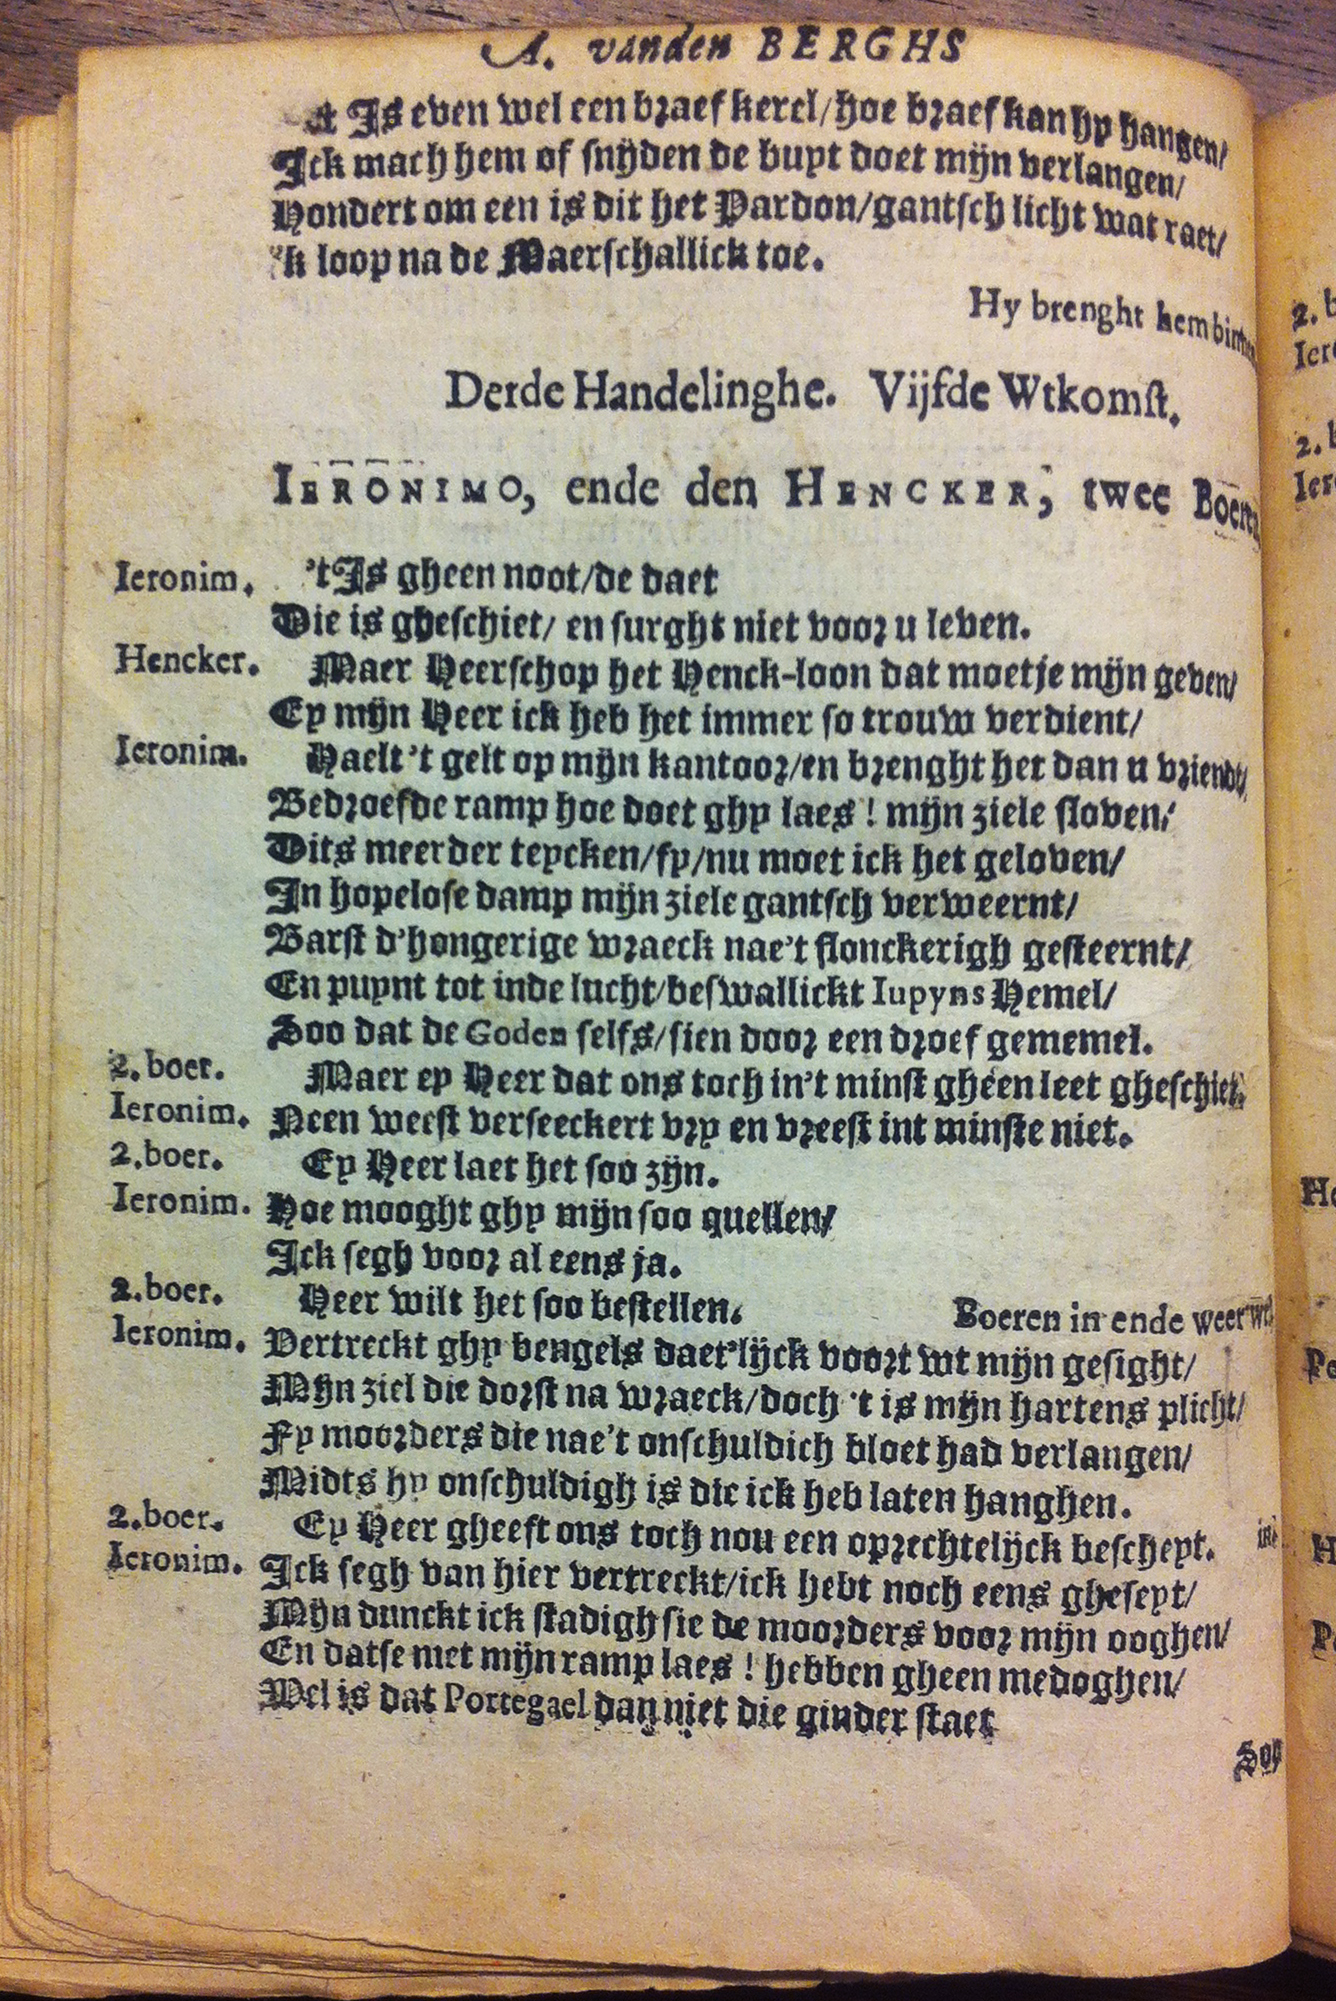 A. vanden BERGHS
't Is even wel een braef kerel/hoe braef kan hy hangen/
Ick mach hem of snijden de buyt doet mijn verlangen/
Hondert om een is dit het Pardon/gantsch licht wat raet/
'k loop na de Maerschallick toe.
Hy brenght hem binnen
Derde Handelinghe. Vijfde Wtkomst.
IERONIMO, ende den HENCKER, twee Boeren
Ieronim. 't Is gheen noot/de daet
Die is gheschiet/ en surght niet voor u leven.
Hencker. Maer Heerschop het Henck-loon dat moetje mijn geven/
Ey mijn Heer ick heb het immer so trouw verdient/
Ieronim. Haelt 't gelt op mijn kantoor/en brenght het dan u vriendt/
Bedroefde ramp hoe doet ghy laes! mijn ziele sloven/
Dits meerder teycken/fy/nu moet ick het geloven/
In hopelose damp mijn ziele gantsch verweernt/
Barst d'hongerige wraeck nae't flonckerigh gesteernt/
En puynt tot inde lucht/beswallickt Iupyns Hemel/
Soo dat de Goden selfs/sien door een droef gememel.
2. boer. Maer ey Heer dat ons toch in't minst gheen leet gheschiet.
Ieronim. Neen weest verseeckert vry en vreest int minste niet.
2. boer. Ey Heer laet het soo zijn.
Ieronim. Hoe mooght ghy mijn soo quellen/
Ick segh voor al eens ja.
2. boer. Heer wilt het soo bestellen. Boeren in ende weer
Ieronim. Vertreckt ghy bengels daet'lijck voort wt mijn gesight/
Mijn ziel die dorst na wraeck/doch 't is mijn hartens plicht/
Fy moorders die nae't onschuldich bloet had verlangen/
Midts hy onschuldigh is die ick heb laten hanghen.
2. boer. Ey Heer gheeft ons toch nou een oprechtelijck bescheyt.
Ieronim. Ick segh van hier vertreckt/ick hebt noch eens gheseyt/
Mijn dunckt ick stadigh sie de moorders voor mijn ooghen/
En datse met mijn ramp laes! hebben gheen medoghen/
Wel is dat Portegael dan niet die ginder staet
2. b
Ier
2. b
Iero